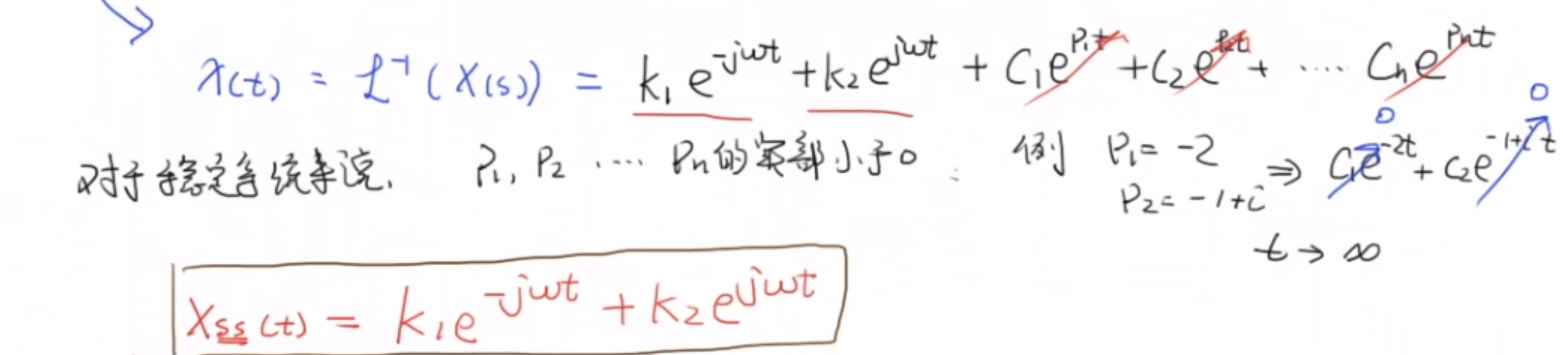 x(t) = ℒ⁻¹(X(s)) = k₁e^{-jωt} + k₂e^{jωt} + C₁e^{P₁t} + C₂e^{P₂t} + ···· Cₙe^{Pₙt}
对于稳定系统来说, P₁, P₂ ···· Pₙ的实部小于0. 例 P₁ = -2 ⇒ C₁e^{-2t} + C₂e^{-1+i t} 0 0
P₂ = -1+i
t → ∞
Xss(t) = k₁e^{-jωt} + k₂e^{jωt}